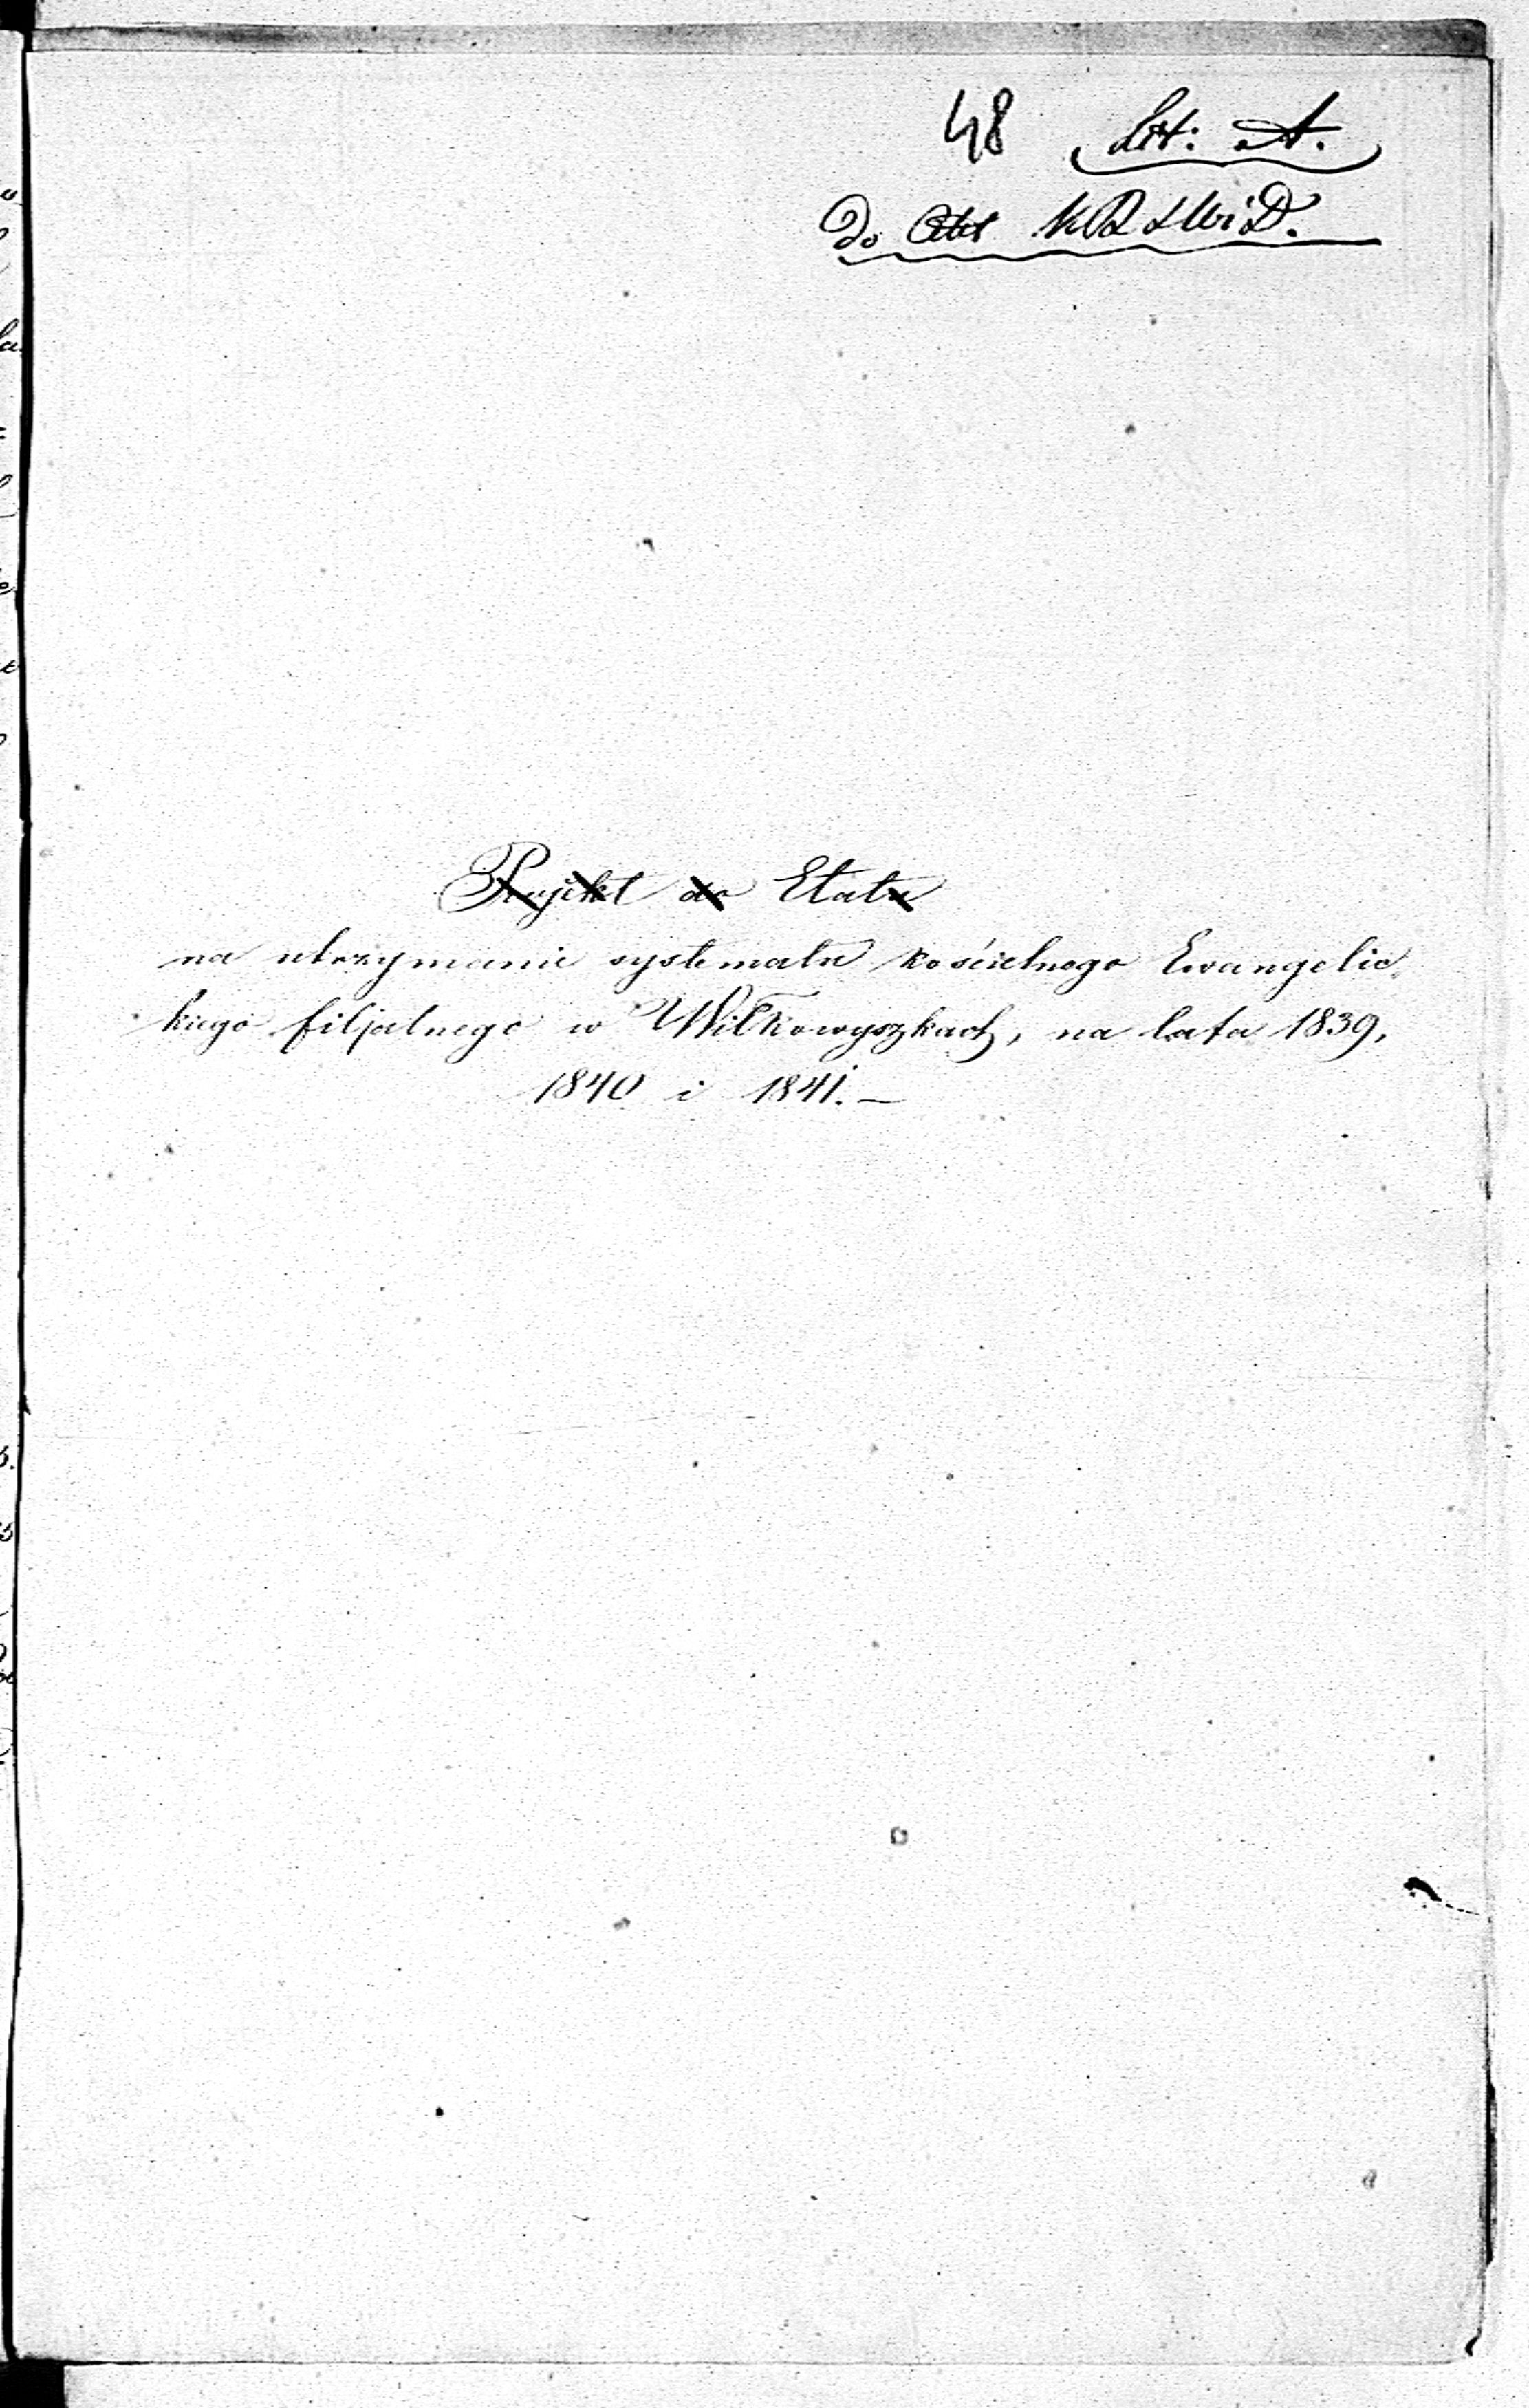 48 Lit: A.
Do Akt KRSWiD.
Projekt do Etatu
na utrzymanie systematu kościelnego Ewangelic
kiego filjalnego w Wiłkowyszkach, na lata 1839,
1840 i 1841. —